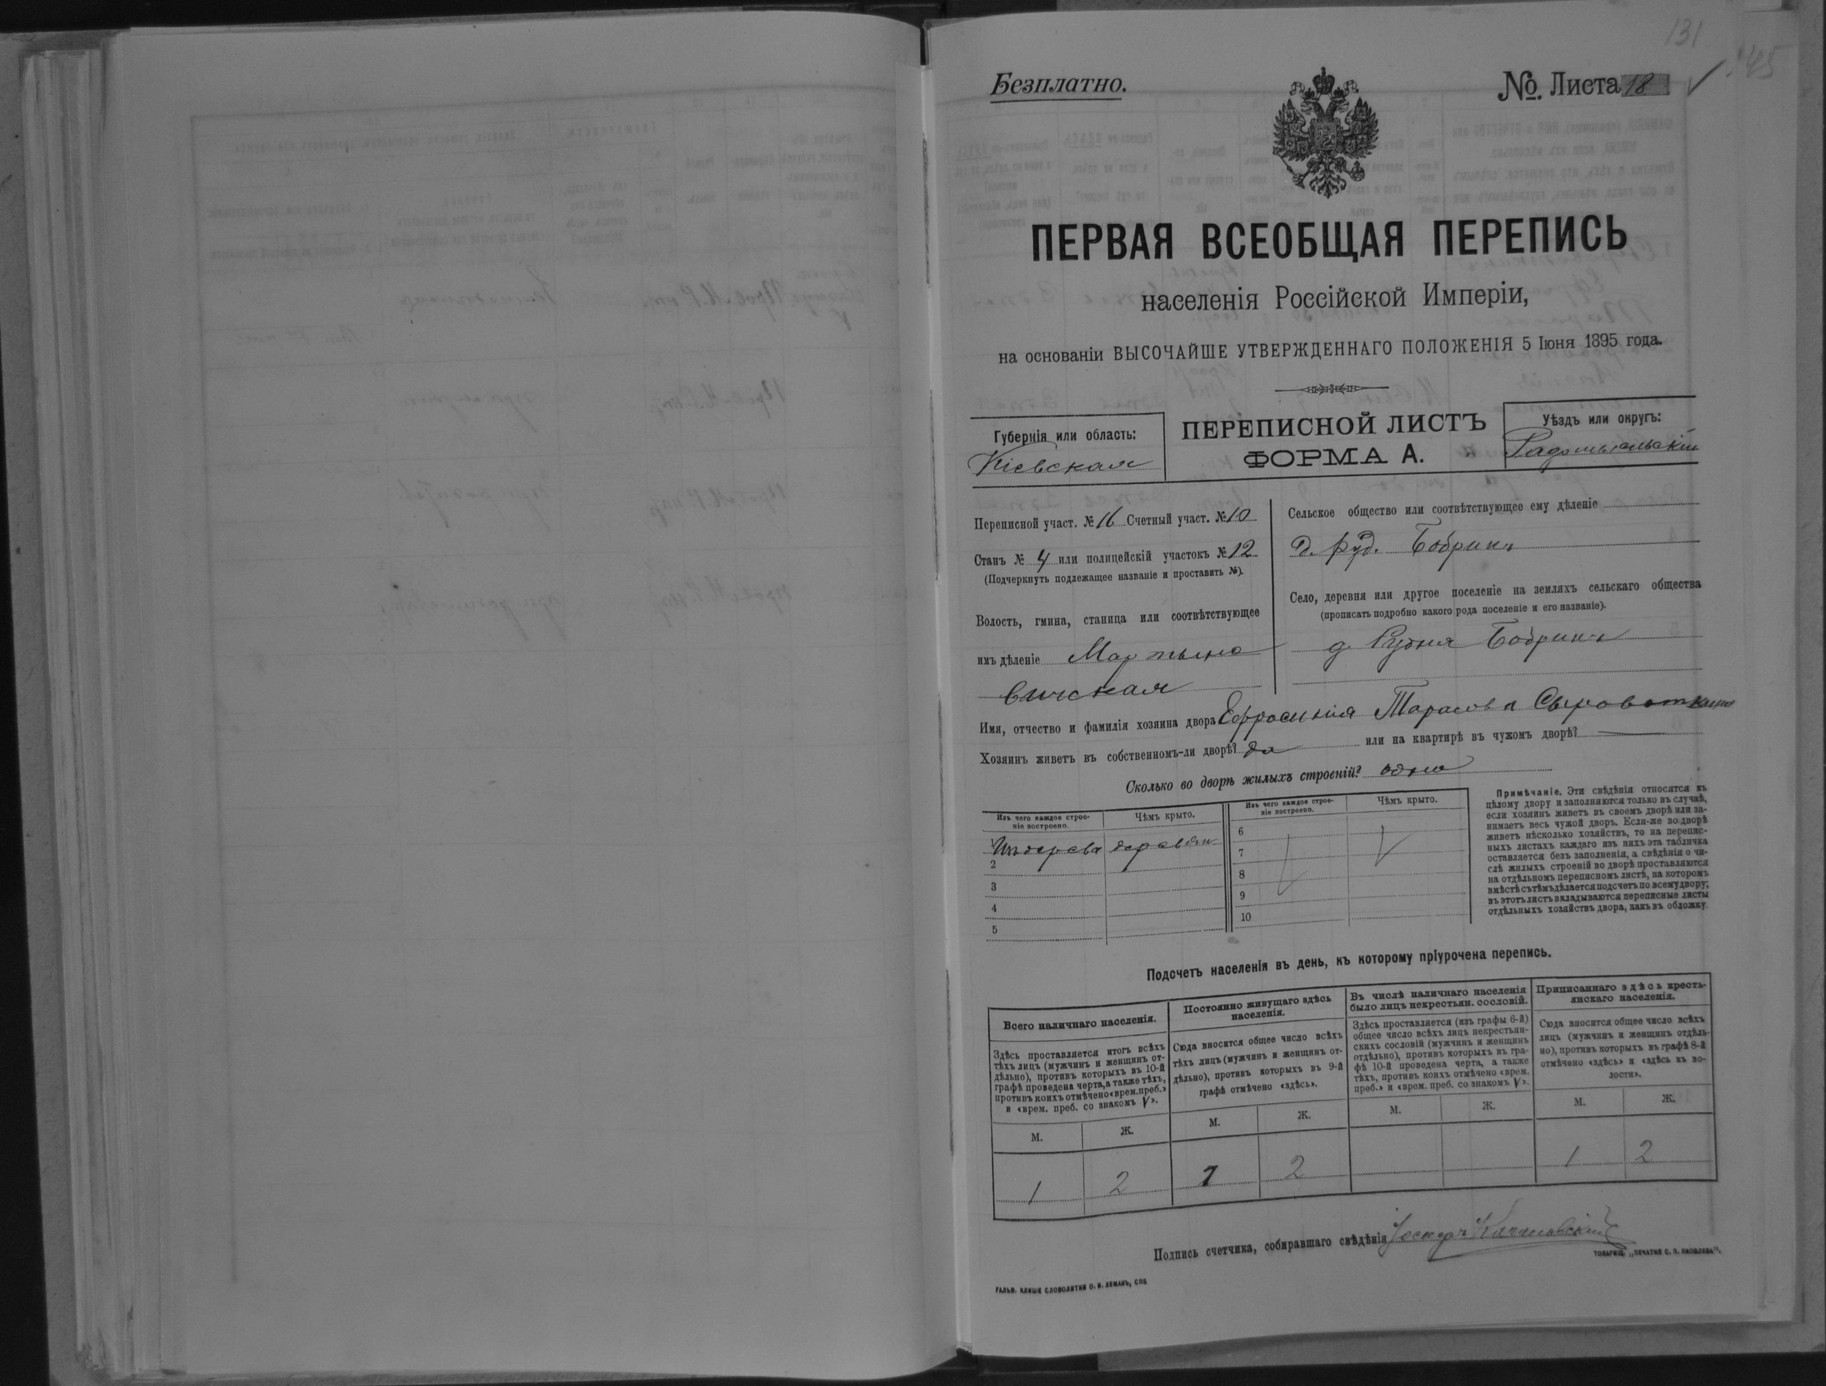 131
145
Безплатно.
№. Листа 18
ПЕРВАЯ ВСЕОБЩАЯ ПЕРЕПИСЬ
населенія Россійской Имперіи,
на основаніи ВЫСОЧАЙШЕ УТВЕРЖДЕННАГО ПОЛОЖЕНІЯ 5 Іюня 1895 года.
Губернія или область:
Кіевская
ПЕРЕПИСНОЙ ЛИСТЪ
ФОРМА А.
Уѣздъ или округъ:
Радомысльскій
Переписной участ. № 16 Счетный участ. № 10
Станъ № 4 или полицейскій участокъ № 12
(Подчеркнуть подлежащее названіе и проставить №).
Волость, гмина, станица или соотвѣтствующее
имъ дѣленіе Мартыно
вичская
Сельское общество или соотвѣтствующее ему дѣленіе
д. Руд. Бобрин
Село, деревня или другое поселеніе на земляхъ сельскаго общества
(прописать подробно какого рода поселеніе и его названіе).
д Рудня Бобрин
Имя, отчество и фамилія хозяина двора Ефросинія Тарасова Сыроваткина
Хозяинъ живетъ въ собственномъ-ли дворѣ? да или на квартирѣ въ чужомъ дворѣ?
Сколько во дворѣ жилыхъ строеній? одно
Изъ чего каждое строеніе построено.
Чѣмъ крыто.
Изъ чего каждое строеніе построено.
Чѣмъ крыто.
1 Из дерева деревян
2
3
4
5
6
7
8
9
10
Примѣчаніе. Эти свѣдѣнія относятся къ
цѣлому двору и заполняются только въ случаѣ,
если хозяинъ живетъ въ своемъ дворѣ или за-
нимаетъ весь чужой дворъ. Если-же во дворѣ
живетъ нѣсколько хозяйствъ, то на перепис-
ныхъ листахъ каждаго изъ нихъ эта табличка
оставляется безъ заполненія, а свѣдѣнія о чи-
слѣ жилыхъ строеній во дворѣ проставляются
на отдѣльномъ переписномъ листѣ, на которомъ
вмѣстѣ съ тѣмъ дѣлается подсчетъ по всему двору;
въ этотъ листъ вкладываются переписные листы
отдѣльныхъ хозяйствъ двора, какъ въ обложку.
Подсчетъ населенія въ день, къ которому пріурочена перепись.
Всего наличнаго населенія.
Здѣсь проставляется итогъ всѣхъ
тѣхъ лицъ (мужчинъ и женщинъ от-
дѣльно), противъ которыхъ въ 10-й
графѣ проведена черта, а также тѣхъ,
противъ коихъ отмѣчено «врем. преб.»
и «врем. преб. со знакомъ V».
М. Ж.
1 2
Постоянно живущаго здѣсь
населенія.
Сюда вносится общее число всѣхъ
тѣхъ лицъ (мужчинъ и женщинъ от-
дѣльно), противъ которыхъ въ 9-й
графѣ отмѣчено «здѣсь».
М. Ж.
1 2
Въ числѣ наличнаго населенія
было лицъ некрестьян. сословій.
Здѣсь проставляется (изъ графы 6-й)
общее число всѣхъ лицъ некрестьян-
скихъ сословій (мужчинъ и женщинъ
отдѣльно), противъ которыхъ въ гра-
фѣ 10-й проведена черта, а также
тѣхъ, противъ коихъ отмѣчено «врем.
преб.» и «врем. преб. со знакомъ V».
М. Ж.
Приписаннаго здѣсь кресть-
янскаго населенія.
Сюда вносится общее число всѣхъ
лицъ (мужчинъ и женщинъ отдѣль-
но), противъ которыхъ въ графѣ 8-й
отмѣчено «здѣсь» и «здѣсь въ во-
лости».
М. Ж.
1 2
Подпись счетчика, собиравшаго свѣдѣнія
ГАЛЬВ. КЛИШЕ СЛОВОЛИТНИ О. И. ЛЕМАНЪ, СПБ
ТОВАРИЩ. „ПЕЧАТНЯ С. П. ЯКОВЛЕВА".